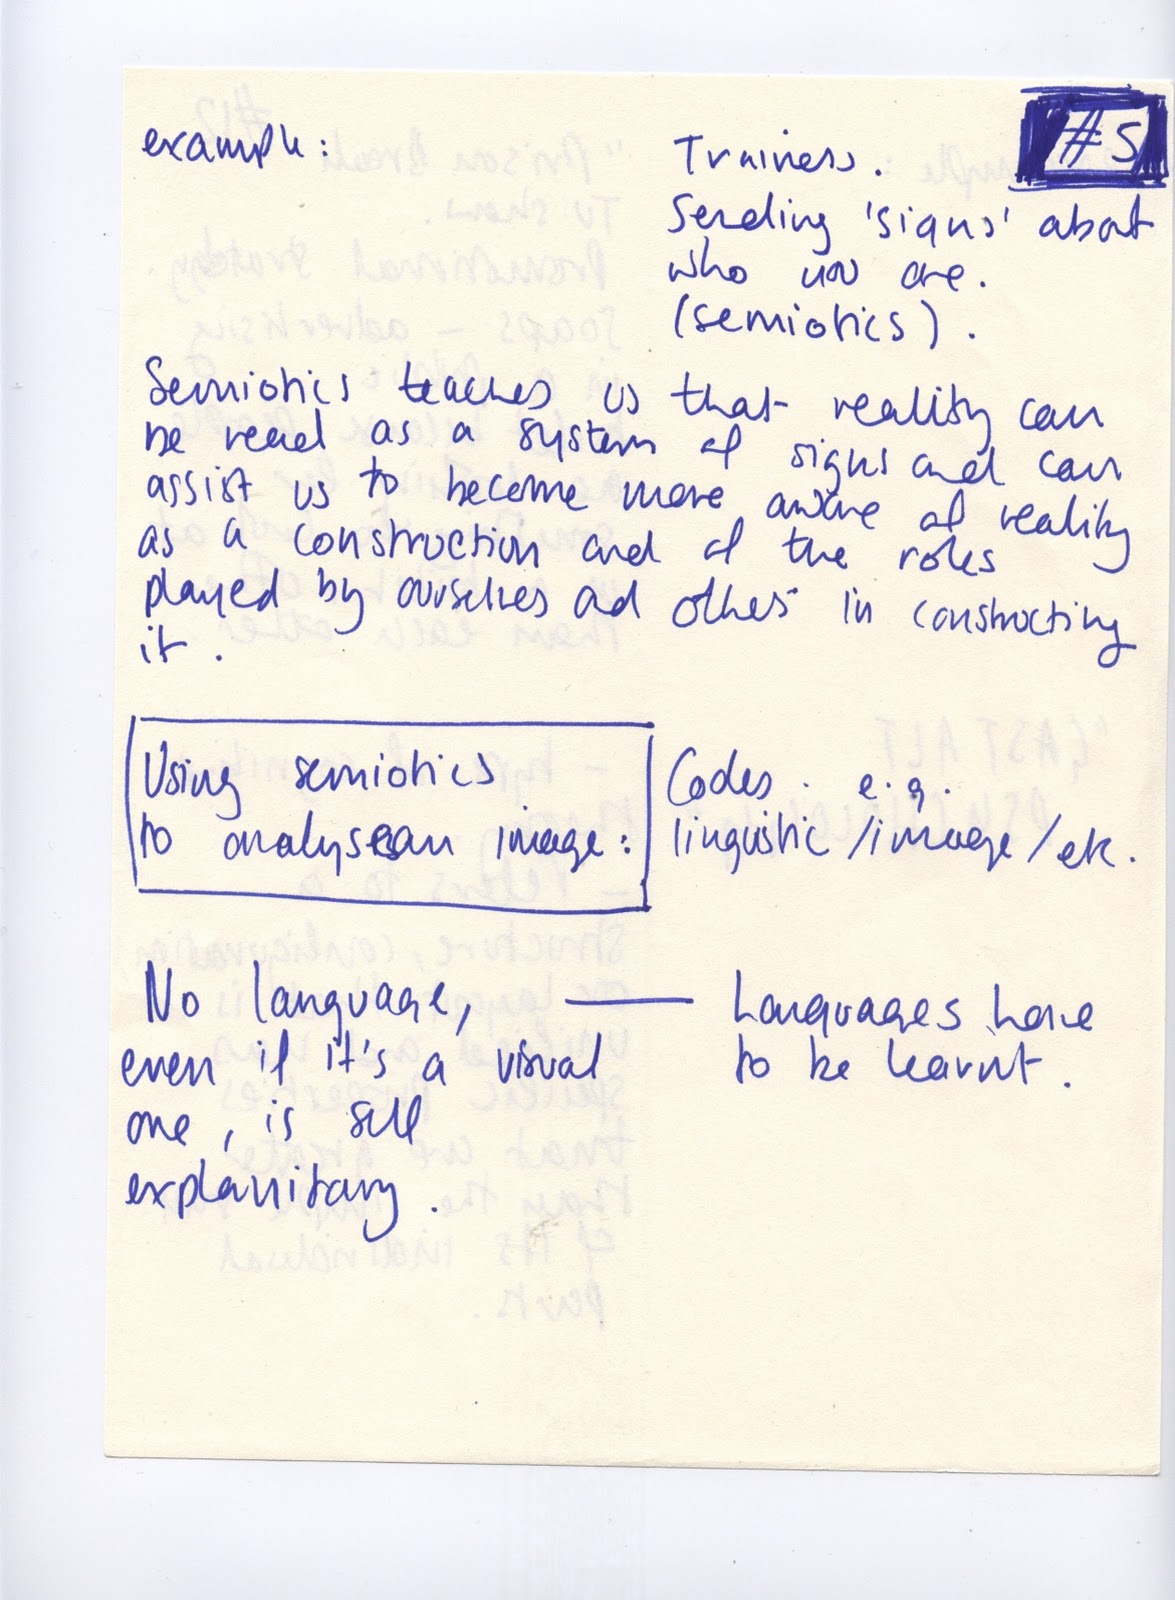 #5
example:
Trainers.
Sending 'signs' about
who you are.
(semiotics).
Semiotics teaches us that reality can
be read as a system of signs and can
assist us to become more aware of reality
as a construction and of the roles
played by ourselves and others in constructing
it.
Using semiotics
to analyse an image:
Codes. e.g.
linguistic/image/etc.
No language,
even if it's a visual
one, is self
explanitary.
— Languages have
to be learnt.